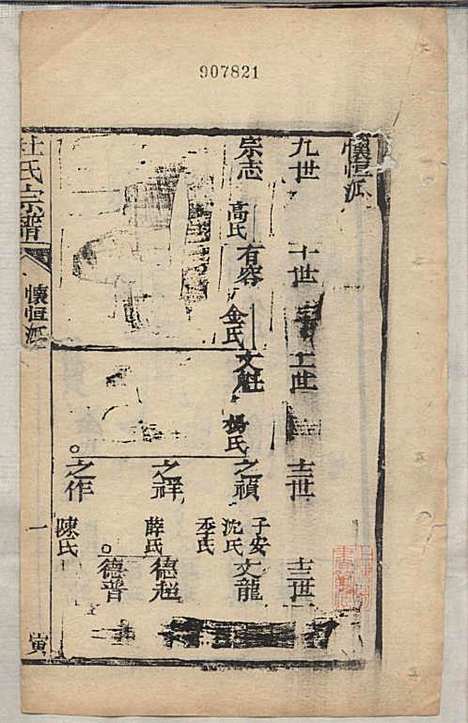 907821
懷恒派
九世 十世 十一世 十二世 十三世
宗志 高氏 有容 金氏 文 楊氏 之禎 子安 沈氏 李氏 文龍
之祥 薛氏 德超
德普
之作 陳氏
杜氏宗譜 懷恒派 一 寅